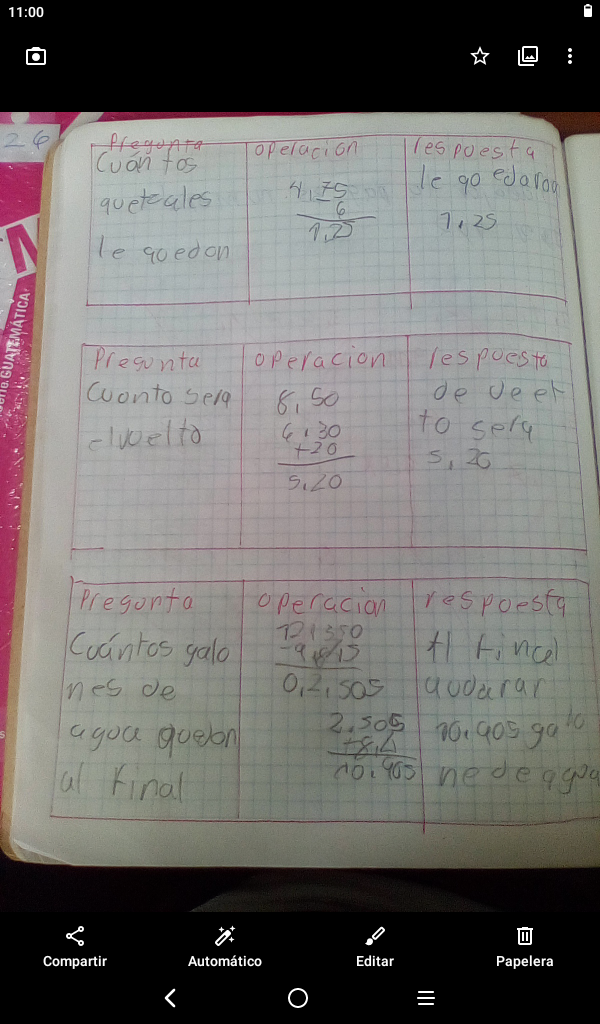 11:00
26
GUATEMÁTICA
Pregunta
operacion
respuesta
Cuántos
quetzales
le quedan
4,75
6
1,25
le qo edaron
1,25
Presunta
operacion
respuesta
Cuanto sera
elvuelto
8,50
6,30
+20
5,20
de
to sera
Presunta
operacion
respoesta
Cuántos galo
nes de
agua quedan
al final
12,350
0,2,505
2,505
10,905
10,905 galo
ne de agua
Compartir
Automático
Editar
Papelera